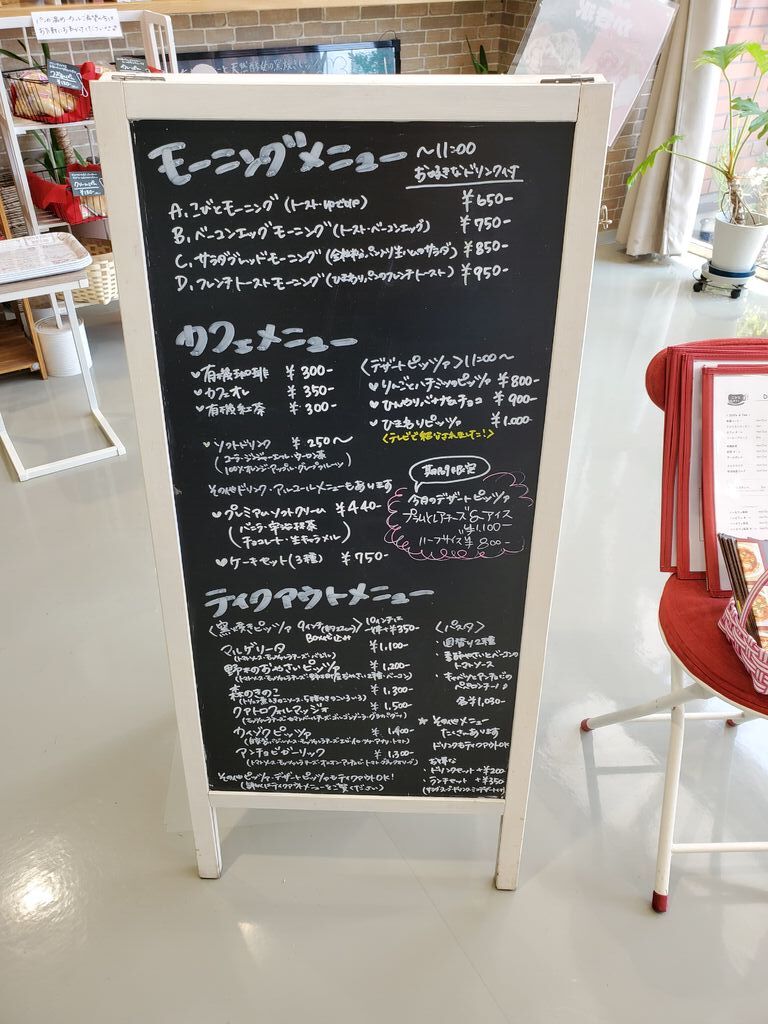 モーニングメニュー ～11:00
お好きなドリンク付
A. こびとモーニング (トースト・ゆでたまご) ¥650-
B. ベーコンエッグモーニング (トースト・ベーコンエッグ) ¥750-
C. サラダブレッドモーニング ¥850-
D. フレンチトーストモーニング (ひまわりパンのフレンチトースト) ¥950-
カフェメニュー
有機珈琲 ¥300-
カフェオレ ¥350-
有機紅茶 ¥300-
ソフトドリンク ¥250～
(コーラ・ジンジャーエール・ウーロン茶
100%オレンジ・アップル・グレープフルーツ)
その他ドリンク・アルコールメニューもあります
プレミアムソフトクリーム ¥440-
(バニラ・宇治抹茶
チョコレート・生キャラメル)
ケーキセット(3種) ¥750-
〈デザートピッツァ〉11:00～
りんごとハチミツのピッツァ ¥800-
ひんやりバナナ&チョコ ¥900-
ひまわりピッツァ ¥1.000-
〈テレビで紹介されました!〉
期間限定
今月のデザートピッツァ
プラムとレアチーズ&アイス
¥1100-
ハーフサイズ ¥800-
テイクアウトメニュー
〈窯焼きピッツァ 9インチ(約22cm)〉 10インチに
BOX代込み 一律+¥350-
マルゲリータ ¥1.100-
(トマトソース・モッツァレラチーズ・バジル)
野木のおやさいピッツァ ¥1.200-
森のきのこ ¥1.300-
クアトロフォルマッジオ ¥1.500-
カンヅォピッツァ ¥1.400-
アンチョビガーリック ¥1.300-
その他ピッツァ・デザートピッツァもテイクアウトOK!
(詳しくはテイクアウトメニューをご覧ください)
〈パスタ〉
・週替り2種
・季節やさいとベーコンの
トマトソース
・キャベツとアンチョビの
ペペロンチーノ
各¥1,030-
★その他メニュー
たくさんあります
ドリンクもテイクアウトOK
お得な
・ドリンクセット +¥200
・ランチセット +¥350